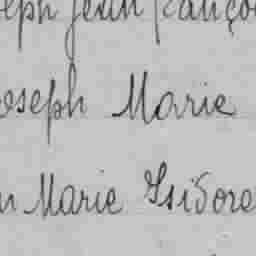 eph Jean Franço
oseph Marie
n Marie Isidore